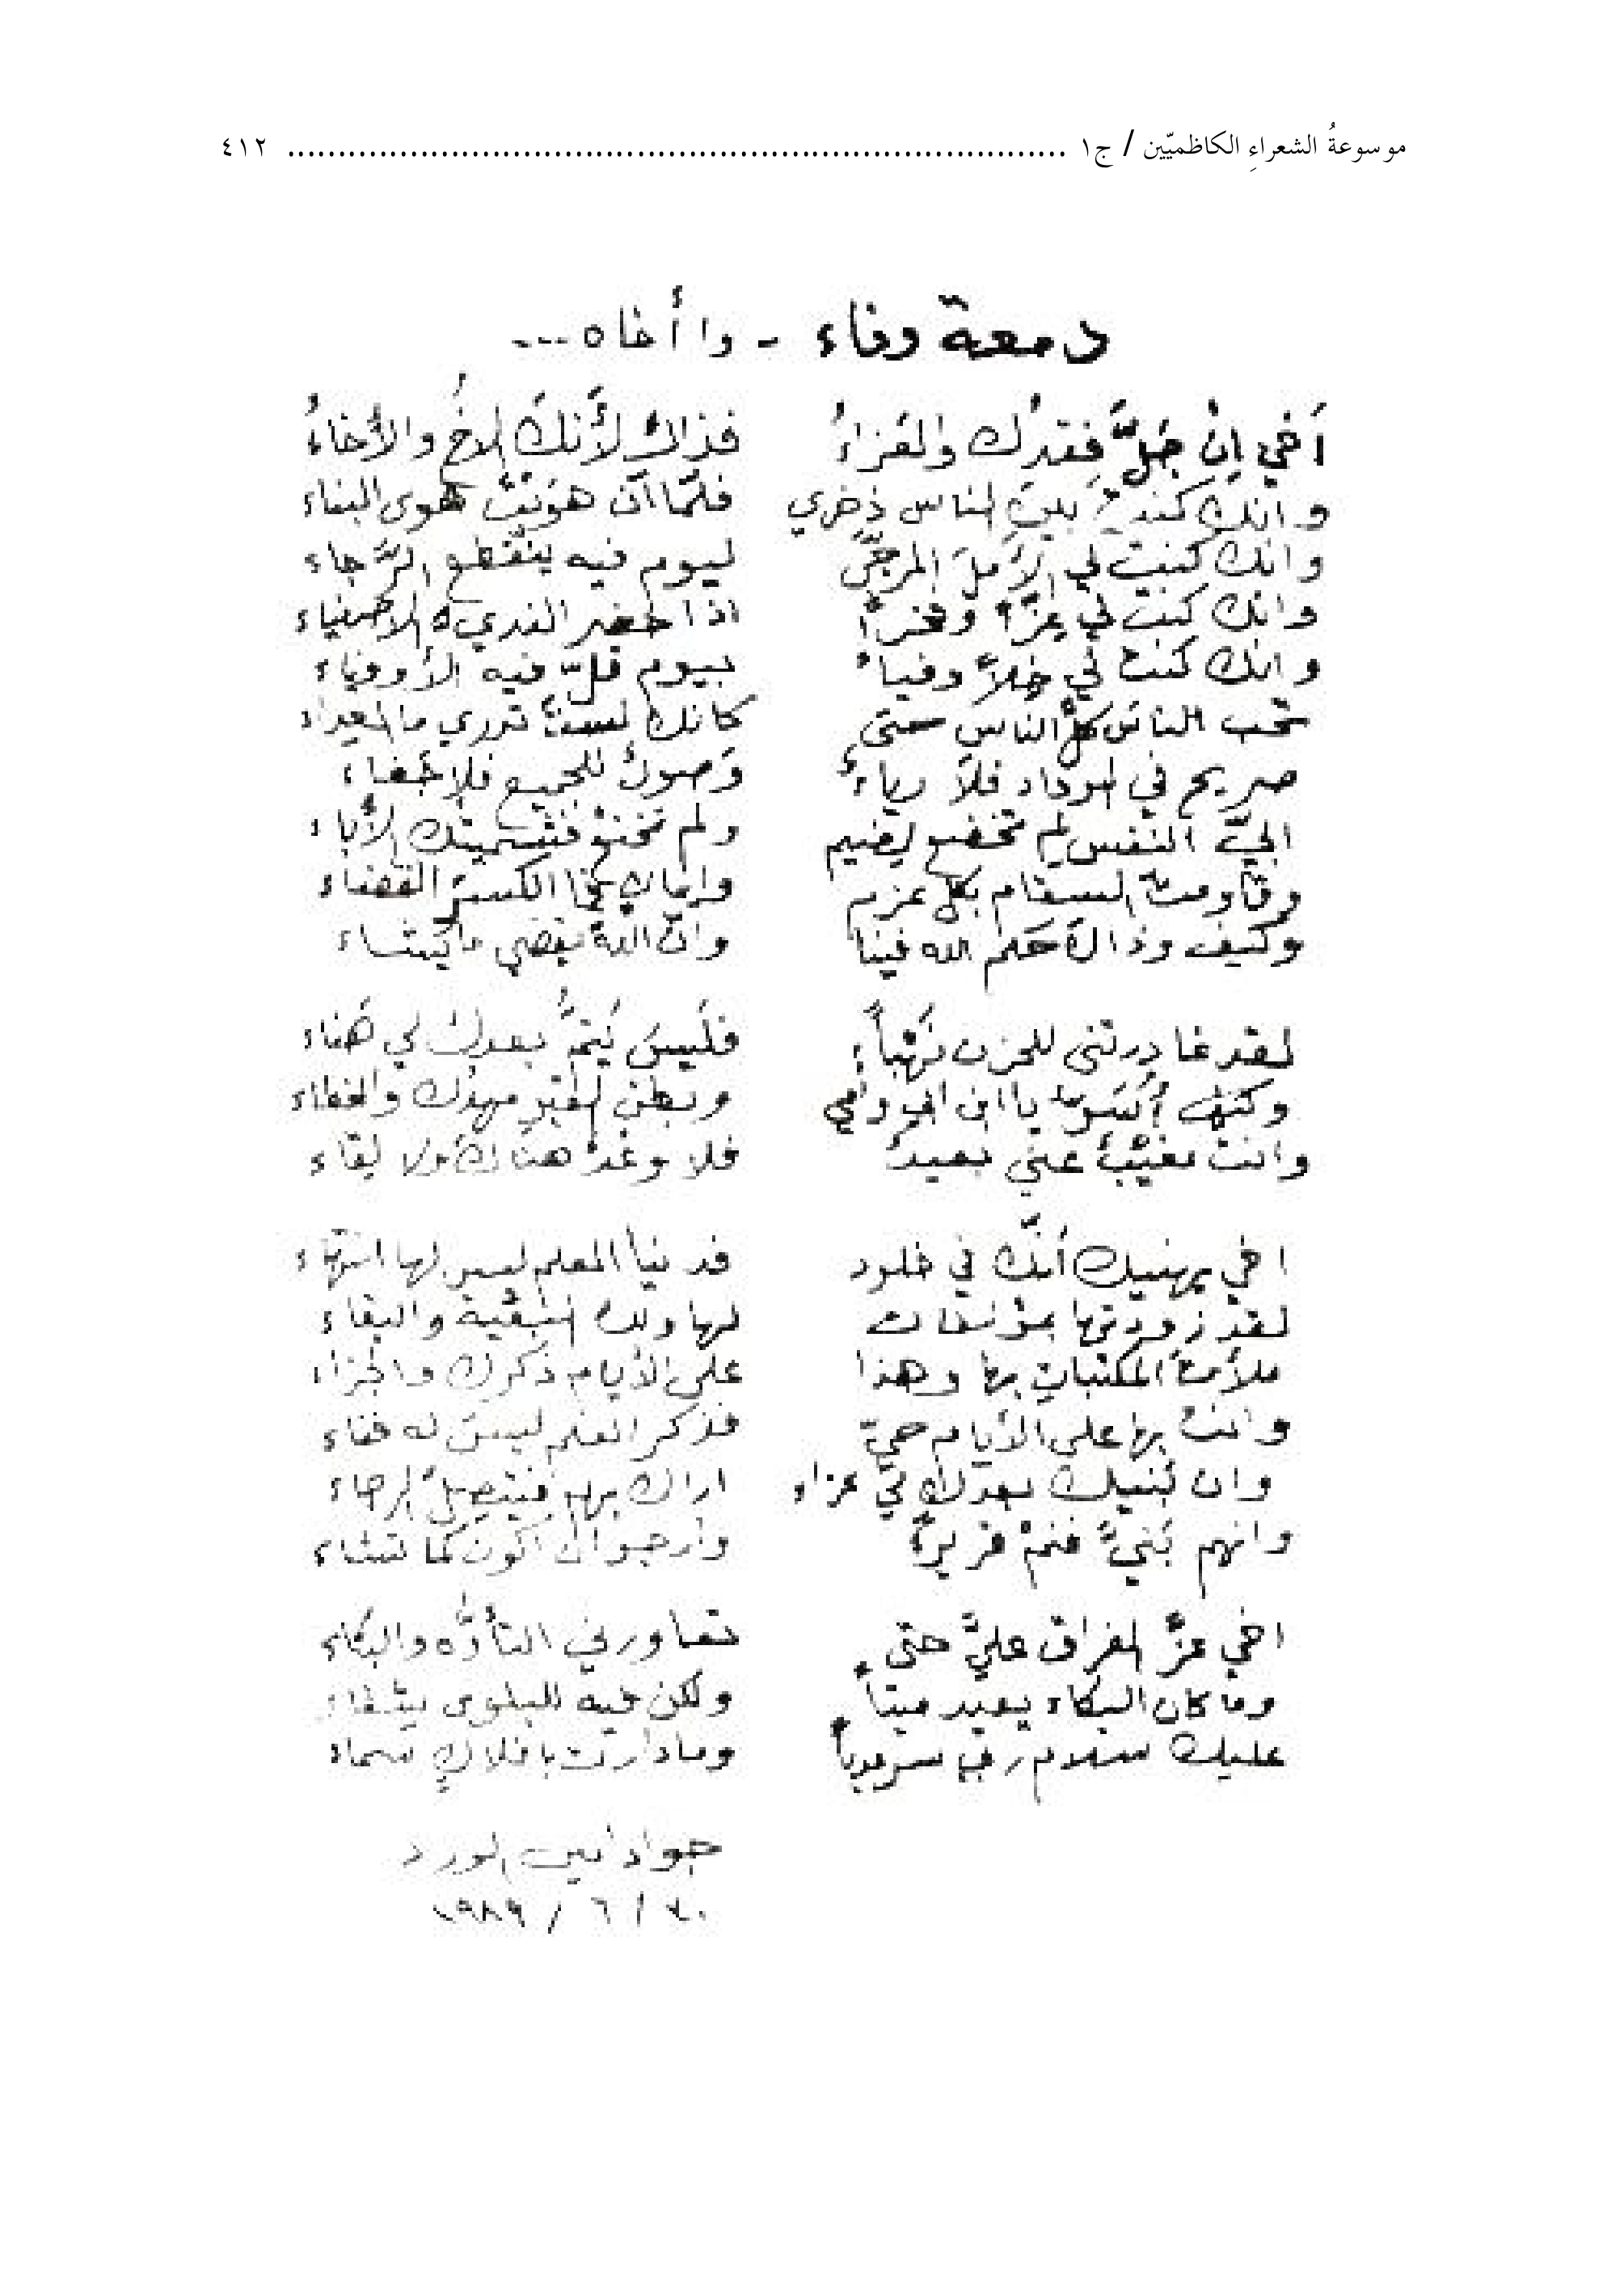 موسوعةُ الشعراءِ الكاظميّين / ج١ ........................................................................ ٤١٢
دمعة وفاء - وا أُخاه ...
أَخي إنْ جَلَّ فقدُك والعَزاءُ فذاكَ لأَنكَ الاخُ والأخاءُ
وانك كنت بين الناس ذخري فلمّا أن هَويْتَ هوى البناء
وانك كنت لي الأملَ المرجّى ليوم فيه ينقطع الرَّجاء
وانك كنت لي عزّاً وفخراً اذا حضر الاصفياء
وانك كنت لي خلاًّ وفياً بيوم قلّ فيه الأوفياء
تحب الناسَ كلَّ الناسِ حتى كانك لستَ تدري ما العداء
صريح في الوداد فلا رياءٌ وَصولٌ للجميع فلا جَفاء
ابيّ النفس لم تخضع لضيم ولم تخنع فشيمتك الأباء
وقاومتَ السقام بكل عزم القضاء
وكيف وذاك حكم الله فينا وانّ اللهَ يقضي ما يَشاء
لقد غادرتني للحزن نَهْباً فلَيسَ يَتمُّ بعدك لي هَناء
وكيف يا ابن امي وبطن القبر مهدُك والغطاء
وانت مغيّبٌ عني بعيدٌ فلا وعدٌ هناك ولا لقاء
اخي يهنيك أنّك في خلود فدنيا العلم ليس لها انتهاء
لقد زودتها بمؤلفات لها ولك والبقاء
ملأتَ المكتباتِ بها وهذا على الأيام ذكرك والجزاء
وانت بها على الأيام حيّ فذكر العلم ليسَ له فناء
وان بَنيك بعدك لي عزاء اراك بهم فيتصلُ الرجاء
وانهم بَنيَّ فنمْ قريراً وأرجو ان اكون كما تشاء
اخي عزَّ الفراق عليَّ حتى تعاورني التأوُّه والبكاء
وما كان البكاء يعيد ميتاً ولكن فيه للبلوى شفاء
عليك سلام ربي سرمدياً وما دارت بافلاكٍ سماء
جواد امين الورد
٣٠ / ٦ / ١٩٨٩